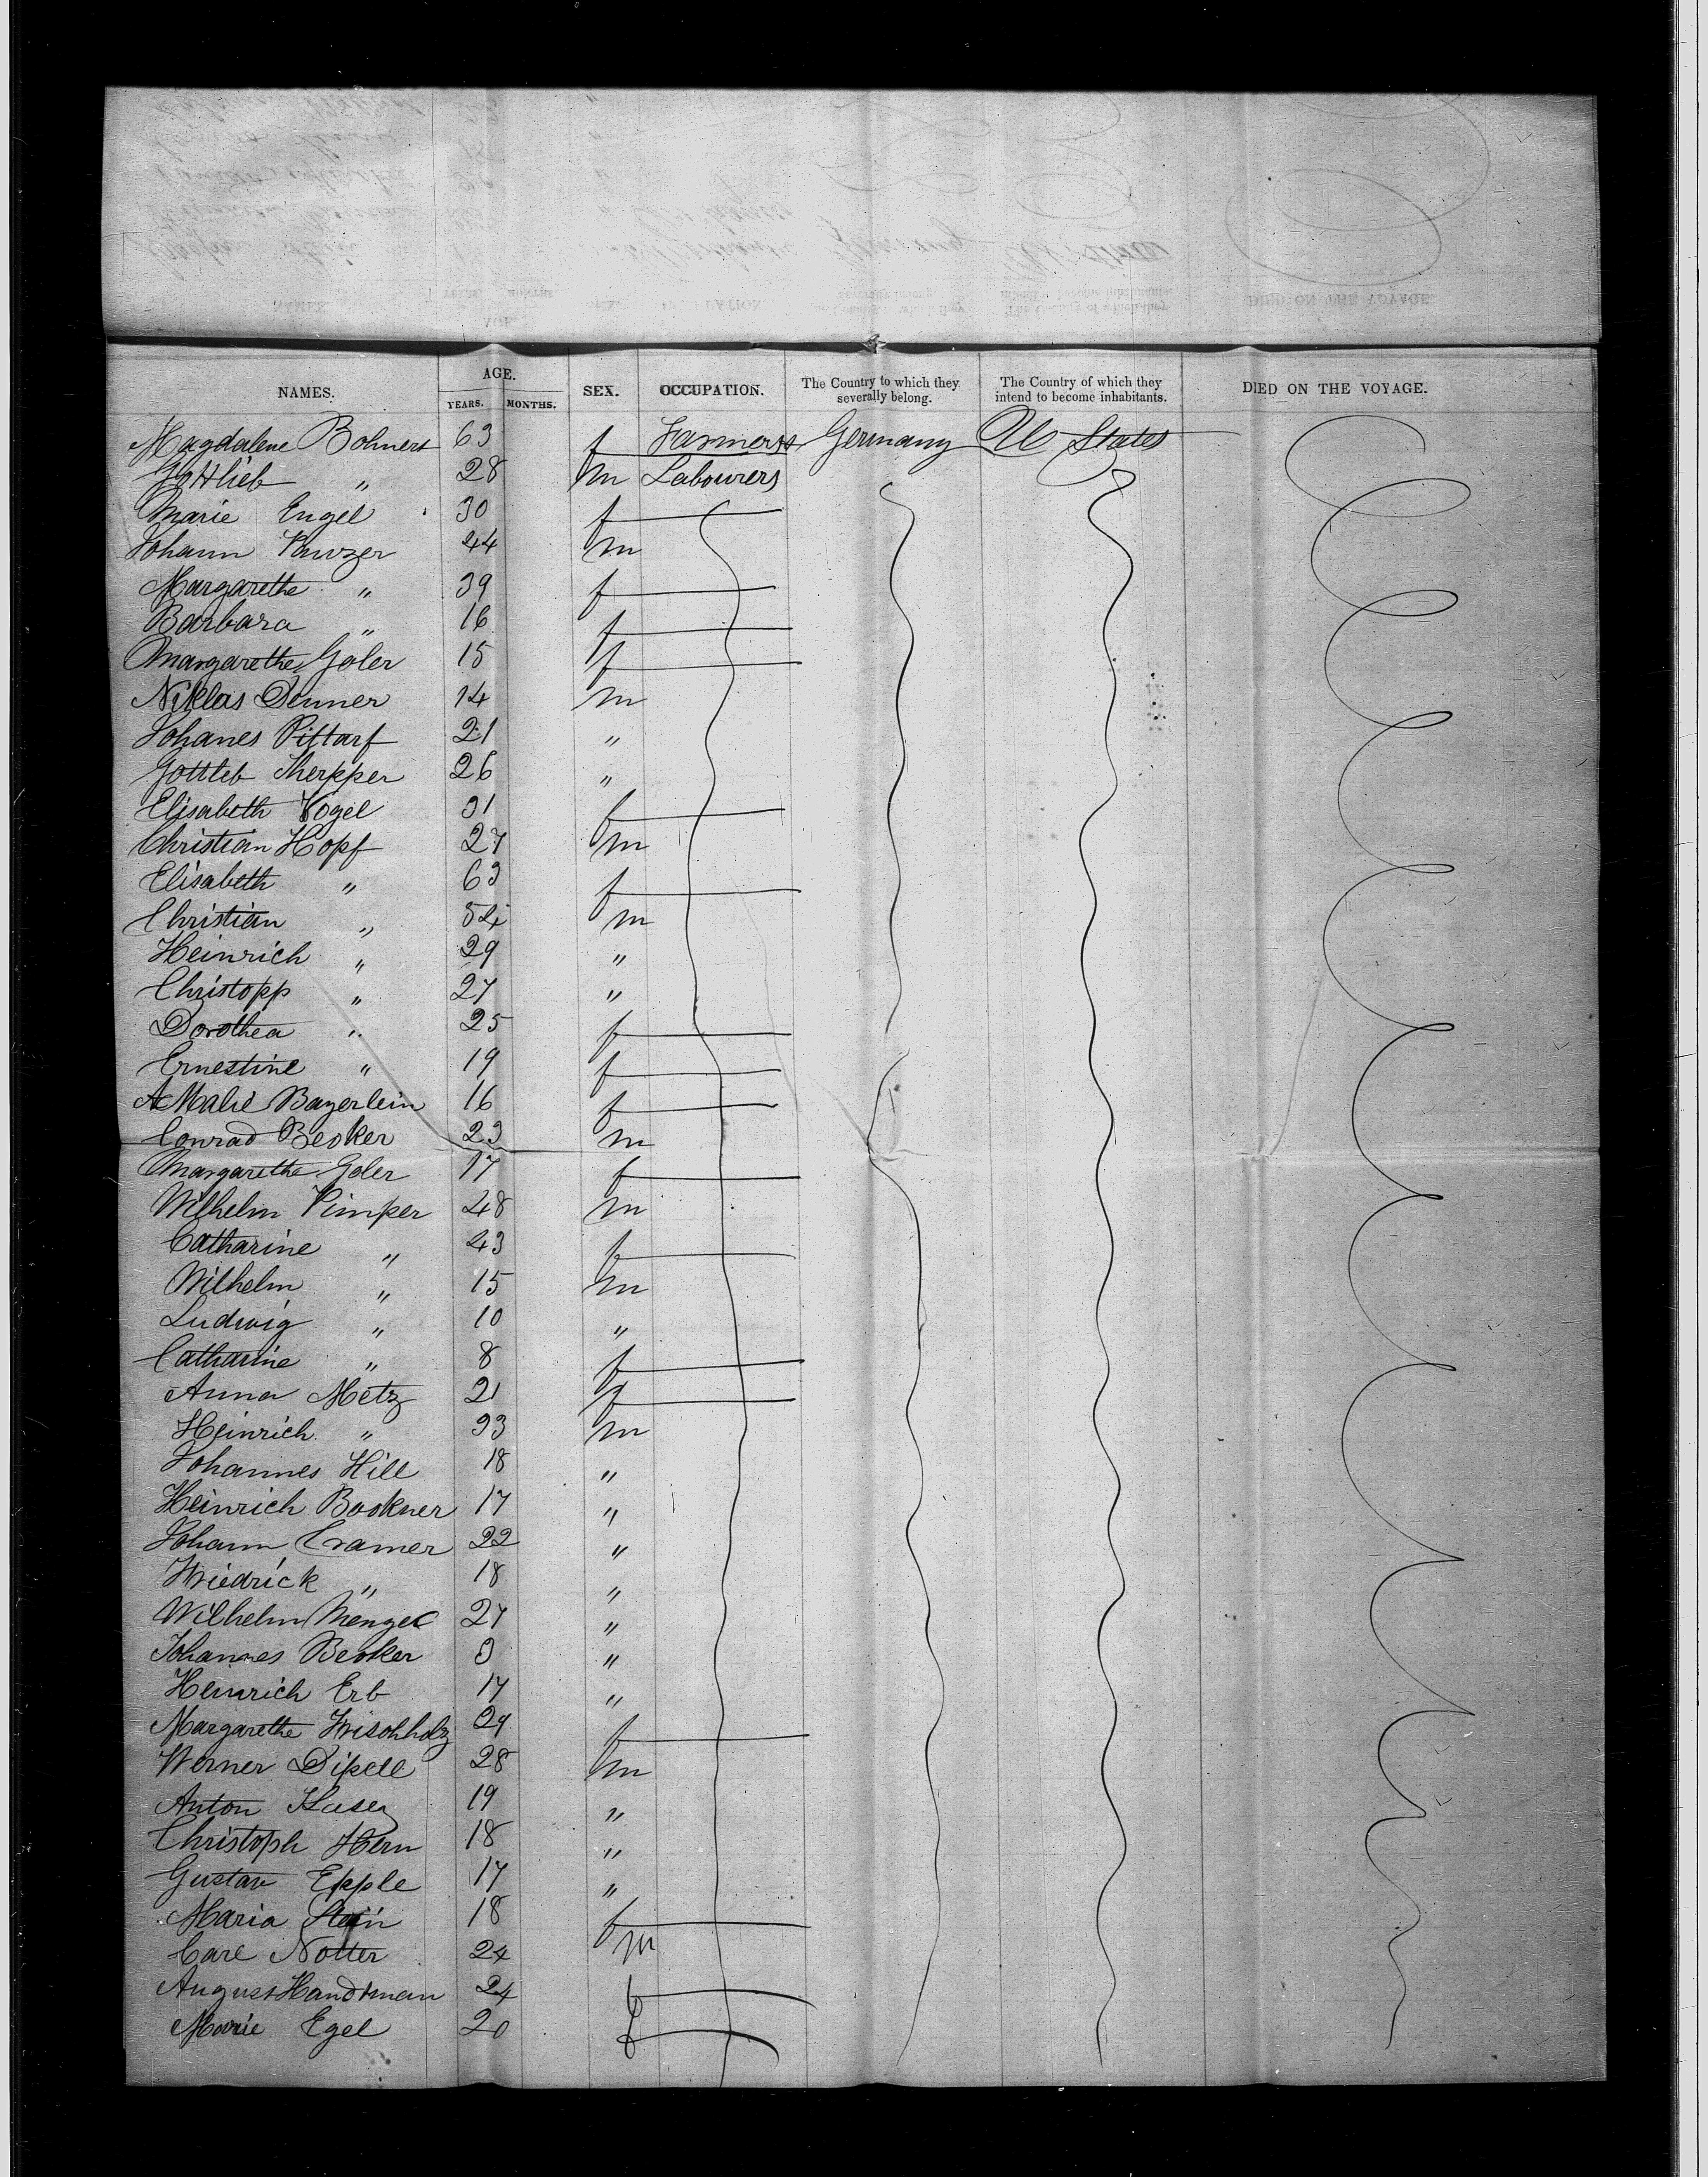 NAMES. AGE. YEARS. MONTHS. SEX. OCCUPATION. The Country to which they severally belong. The Country of which they intend to become inhabitants. DIED ON THE VOYAGE.
Magdalene Bohnert 63 f Farmers Germany U States
Gottlieb " 28 m Labourers
Marie Engel 30 f
Johann 44 m
Margarethe " 39 f
Barbara " 16 f
Margarethe Goler 15 f
Niklas Denner 14 m
Johanes Pittarf 21 "
Gottleb Sherpper 26 "
Elisabeth Vogel 31 f
Christian Hopf 27 m
Elisabeth " 63 f
Christian " 54 m
Heinrich " 29 "
Christopp " 27 "
Dorothea " 25 f
Ernestine " 19 f
AMalie Bayerlein 16 f
Conrad Becker 23 m
Margarethe Goler 17 f
Wilhelm Pimper 48 m
Catharine " 43 f
Wilhelm " 15 m
Ludwig " 10 "
Catharine " 8 f
Anna Metz 21 f
Heinrich " 33 m
Johannes Hill 18 "
Heinrich Bockner 17 "
Johann Cramer 22 "
Friedrick " 18 "
Wilhelm Mengel 27 "
Johannes Becker 9 "
Heinrich Erb 17 "
Margarethe Frischholz 29 f
Werner Dipell 28 m
Anton 19 "
Christoph Hern 18 "
Gustav Epple 17 "
Maria Stein 18 f
Carl Notter 24 m
August Handtman 24 f
Marie Egel 20 f